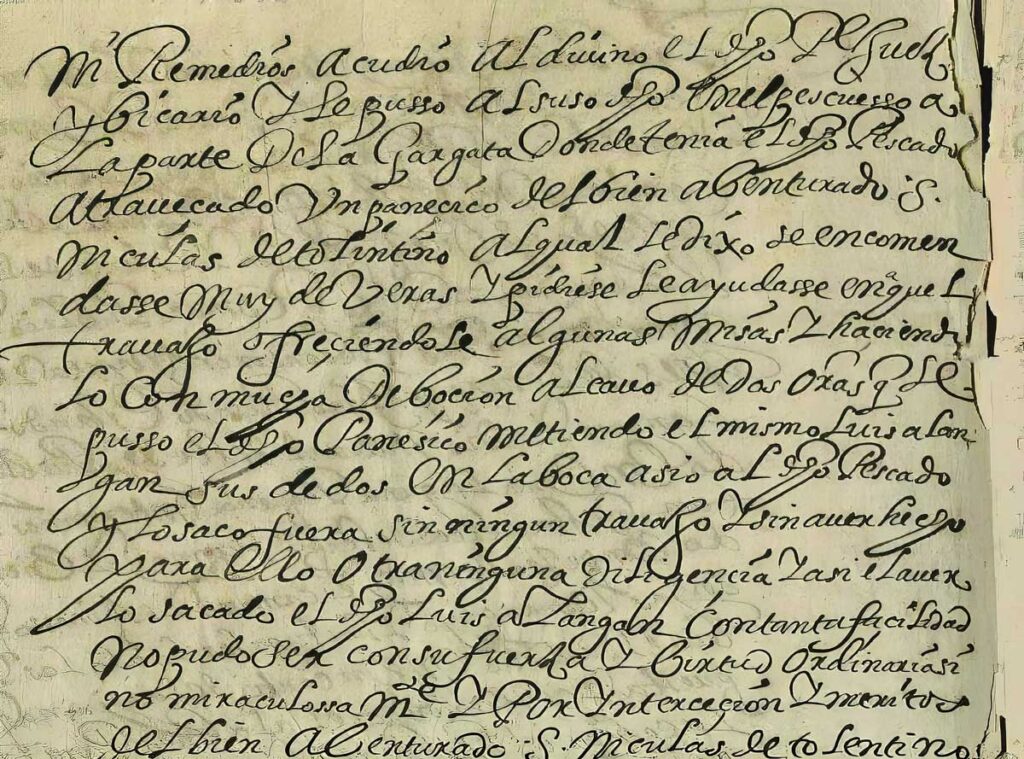 mi Remedios acudio al divino el dho Pe Juez
y bicario y le pusso al suso dho en el pescuesso a
la parte de la Gargata Donde tenia el dho Pescado
atravecado Un panecico del bien abenturado S.
Niculas de tolintino al qual le dixo se encomen
dasse muy de Veras y pidiese le ayudasse en aquel
travaxo ofreçiendole algunas misas y haciendo
lo Con mucha Deboçion al cavo de Dos oras q le
pusso el dho Panesico metiendo el mismo Luis a lan
gan sus dedos en la boca asio al dho Pescado
y lo saco fuera sin ningun travaxo y sin aver hecho
para ello otra ninguna diligencia y asi el aver
lo sacado el dho Luis a langan Con tanta facilidad
No pudo ser con su fuerza y birtud ordinaria si
no miraculossa mte y Por Ynterceçion y meritos
del bien Abenturado S. Niculas de tolentino